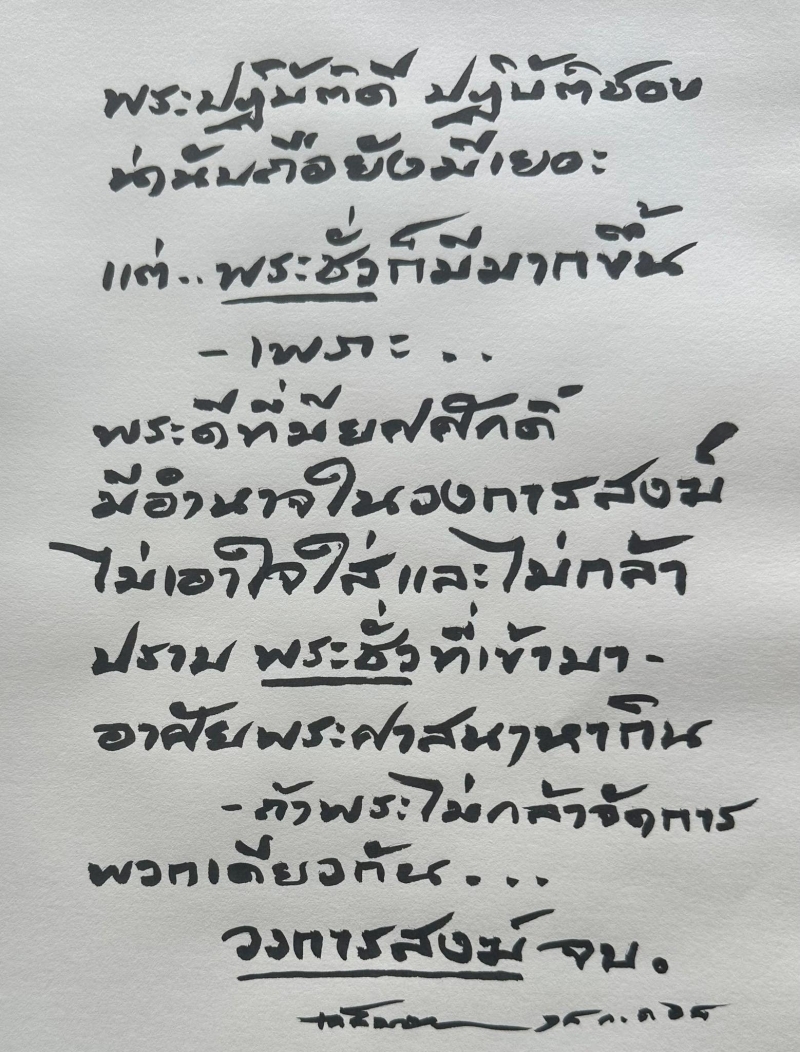 พระปฏิบัติดี ปฏิบัติชอบ
น่านับถือยังมีเยอะ
แต่.. พระชั่วก็มีมากขึ้น
- เพราะ..
พระดีที่มียศศักดิ์
มีอำนาจในวงการสงฆ์
ไม่เอาใจใส่และไม่กล้า
ปราบ พระชั่วที่เข้ามา-
อาศัยพระศาสนาหากิน
- ถ้าพระไม่กล้าจัดการ
พวกเดียวกัน...
วงการสงฆ์ จบ.